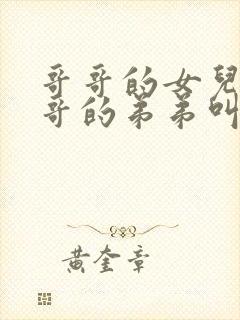 哥哥的女兒
哥的弟弟叫
黃奎章